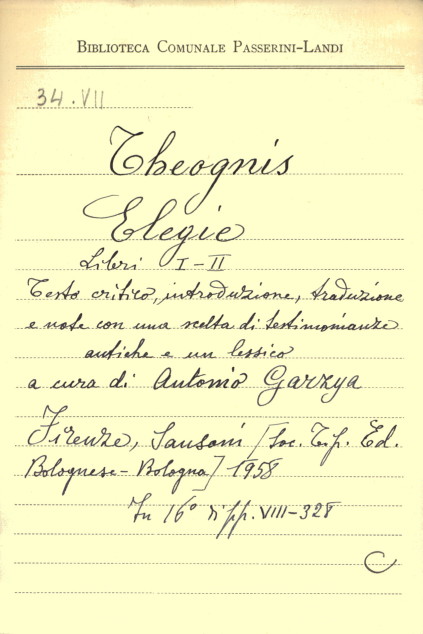 BIBLIOTECA COMUNALE PASSERINI-LANDI
34.VII
Theognis
Elegie
Libri I-II
Testo critico, introduzione, traduzione
e note con una scelta di testimonianze
antiche e un lessico
a cura di Antonio Garzya
Firenze, Sansoni [Soc. Tip. Ed.
Bolognese-Bologna] 1958
In 16° di pp. VIII-328
C